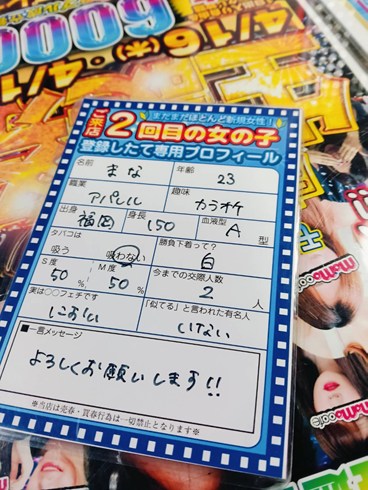 4/16(木)・4/1
6000
まだまだほとんど新規女性!
ご来店2回目の女の子
登録したて専用プロフィール
名前 まな 年齢 23
職業 アパレル 趣味 カラオケ
出身 福岡 身長 150 血液型 A 型
タバコは 吸う 吸わない 勝負下着って? 白
S度 50% : M度 50% 今までの交際人数 2 人
実は〇〇フェチです におい 「似てる」と言われた有名人 いない
■一言メッセージ
よろしくお願いします!!
※当店は売春・買春行為は一切禁止となります※